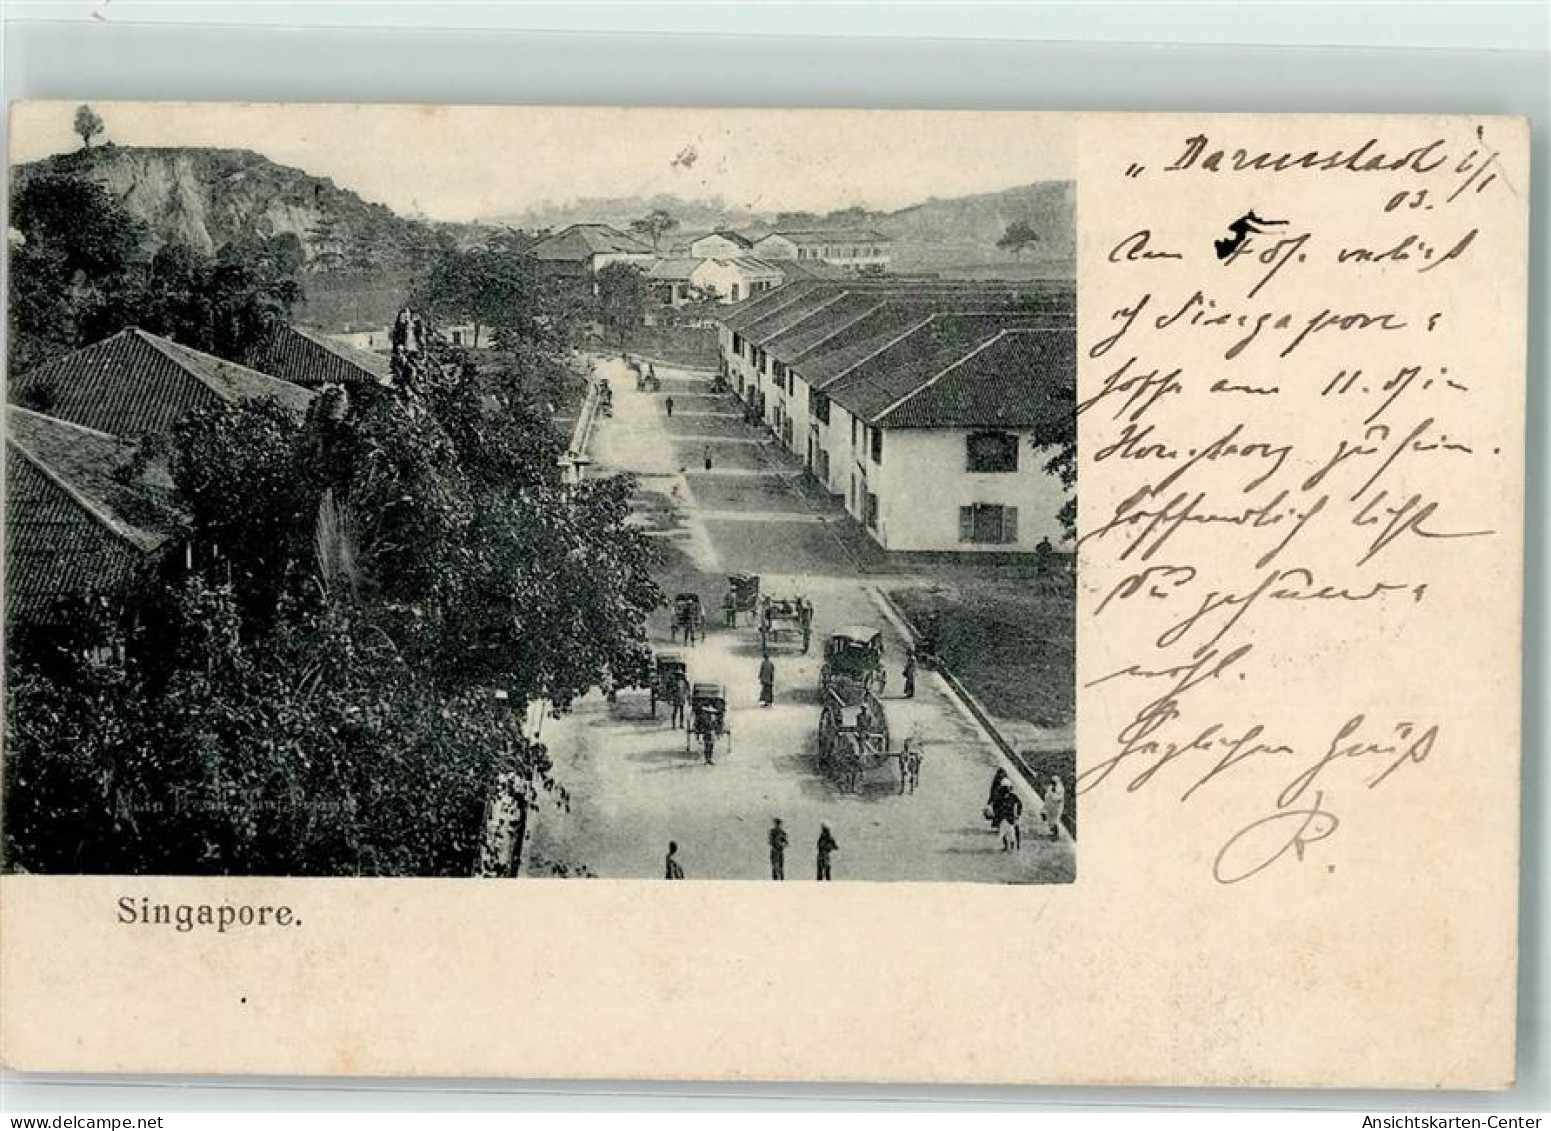 „Darmstadt 6/1
03.
Am 5. ds. verließ
ich Singapore &
hoffe am 11. ds in
Hongkong zu sein.
Hoffentlich
Du
wohl.
Herzlichen Gruß
R.
Singapore.
Ansichtskarten-Center